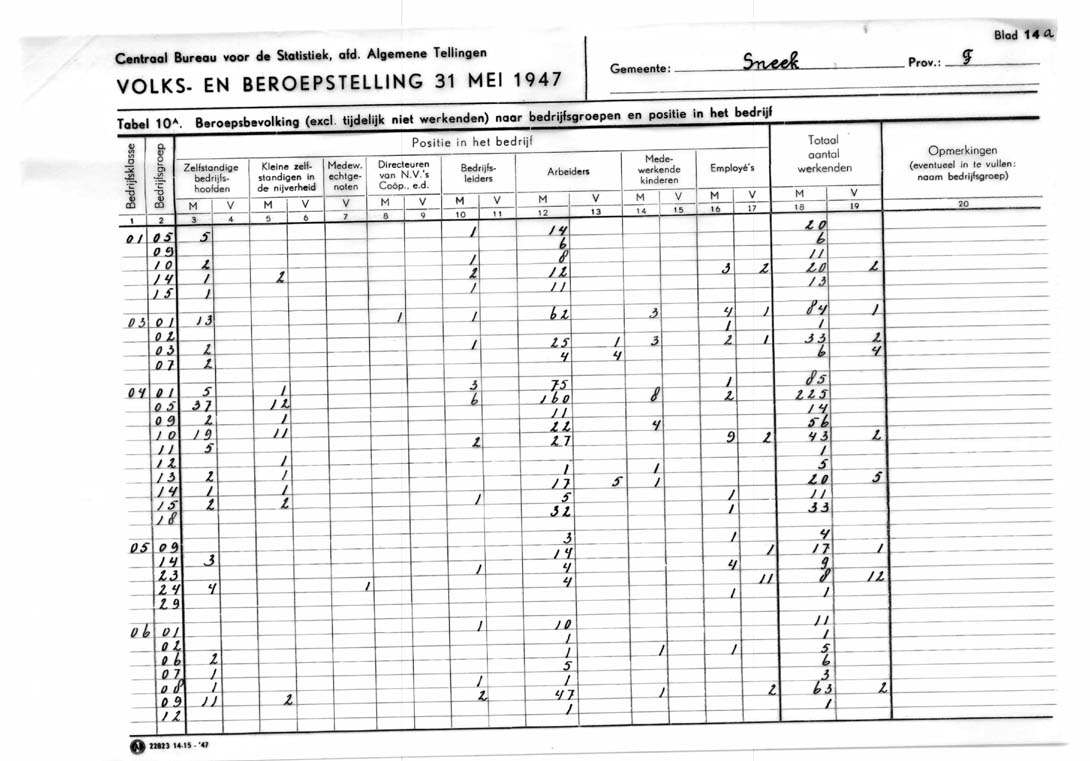 Blad 14 a
Centraal Bureau voor de Statistiek, afd. Algemene Tellingen
VOLKS- EN BEROEPSTELLING 31 MEI 1947
Gemeente: Sneek Prov.: F
Tabel 10A. Beroepsbevolking (excl. tijdelijk niet werkenden) naar bedrijfsgroepen en positie in het bedrijf
Bedrijfsklasse
Bedrijfsgroep
Positie in het bedrijf
Zelfstandige bedrijfs- hoofden
Kleine zelf- standigen in de nijverheid
Medew. echtge- noten
Directeuren van N.V.'s Coöp., e.d.
Bedrijfs- leiders
Arbeiders
Mede- werkende kinderen
Employé's
Totaal aantal werkenden
Opmerkingen (eventueel in te vullen: naam bedrijfsgroep)
M V M V V M V M V M V M V M V M V
1 2 3 4 5 6 7 8 9 10 11 12 13 14 15 16 17 18 19 20
01 05 5 1 14 20
09 6 6
10 2 1 8 11
14 1 2 2 12 3 2 20 2
15 1 1 11 13
03 01 13 1 1 62 3 4 1 84 1
02 1 1
03 2 1 25 1 3 2 1 33 2
07 2 4 4 6 4
04 01 5 1 3 75 1 85
05 37 12 6 160 8 2 225
09 2 1 11 14
10 19 11 22 4 56
11 5 2 27 9 2 43 2
12 1 1
13 2 1 1 1 5
14 1 1 17 5 1 20 5
15 2 2 1 5 1 11
18 32 1 33
05 09 3 1 4
14 3 14 1 17 1
23 1 4 4 9
24 4 1 4 11 8 12
29 1 1
06 01 1 10 11
02 1 1
06 2 1 1 1 5
07 1 5 6
08 1 1 1 3
09 11 2 2 47 1 2 63 2
12 1 1
22823 14-15 - '47